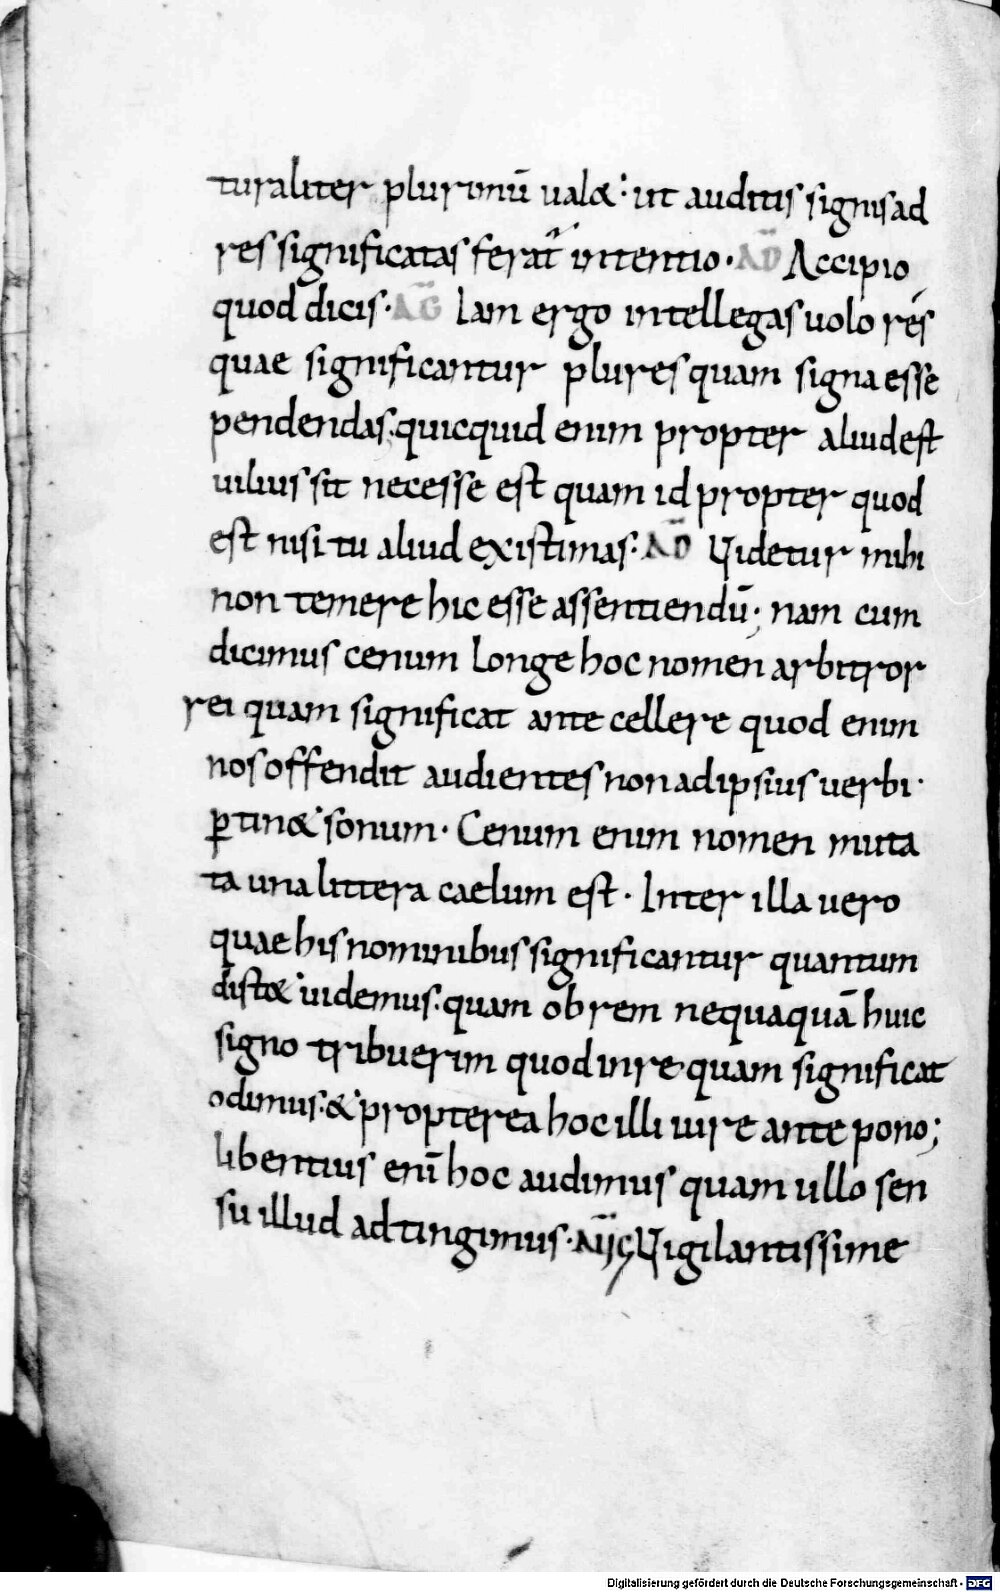 turaliter plurimū ual&: ut auditis signis ad
res significatas ferat̄ intentio. AD̄ Accipio
quod dicis. AḠ Iam ergo intellegas uolo res
quae significantur plures quam signa esse
pendendas. quicquid enim propter aliud est
uilius sit necesse est quam id propter quod
est nisi tu aliud existimas. AD̄ Videtur mihi
non temere hic esse assentiendū; nam cum
dicimus cenum longe hoc nomen arbitror
rei quam significat ante cellere quod enim
nos offendit audientes non ad ipsius verbi.
ꝑtin& sonum. Cenum enim nomen muta
ta una littera caelum est. Inter illa vero
quae his nominibus significantur quantum
dist& uidemus. quam ob rem nequaquā huic
signo tribuerim quod in re quam significat
odimus. & propterea hoc illi iure ante pono;
libentius enī hoc audimus quam ullo sen
su illud adtingimus. Vigilantissime
Digitalisierung gefördert durch die Deutsche Forschungsgemeinschaft - DFG